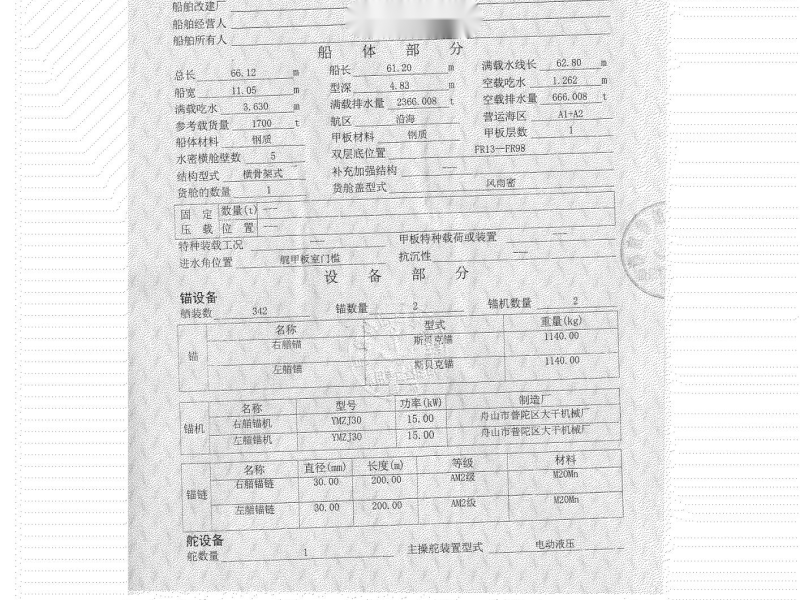 船舶改建厂
船舶经营人
船舶所有人
船 体 部 分
总长 66.12 m 船长 61.20 m 满载水线长 62.80 m
船宽 11.05 m 型深 4.83 m 空载吃水 1.262 m
满载吃水 3.630 m 满载排水量 2366.008 t 空载排水量 666.008 t
参考载货量 1700 t 航区 沿海 营运海区 A1+A2
船体材料 钢质 甲板材料 钢质 甲板层数 1
水密横舱壁数 5 双层底位置 FR13—FR98
结构型式 横骨架式 补充加强结构 ---
货舱的数量 1 货舱盖型式 风雨密
固 定 数量(t) ---
压 载 位 置 ---
特种装载工况 --- 甲板特种载荷或装置 ---
进水角位置 艉甲板室门槛 抗沉性 ---
设 备 部 分
锚设备
舾装数 342 锚数量 2 锚机数量 2
锚 名称 型式 重量(kg)
右艏锚 斯贝克锚 1140.00
左艏锚 斯贝克锚 1140.00
锚机 名称 型号 功率(kW) 制造厂
右艏锚机 YMZJ30 15.00 舟山市普陀区大干机械厂
左艏锚机 YMZJ30 15.00 舟山市普陀区大干机械厂
锚链 名称 直径(mm) 长度(m) 等级 材料
右艏锚链 30.00 200.00 AM2级 M20Mn
左艏锚链 30.00 200.00 AM2级 M20Mn
舵设备
舵数量 1 主操舵装置型式 电动液压